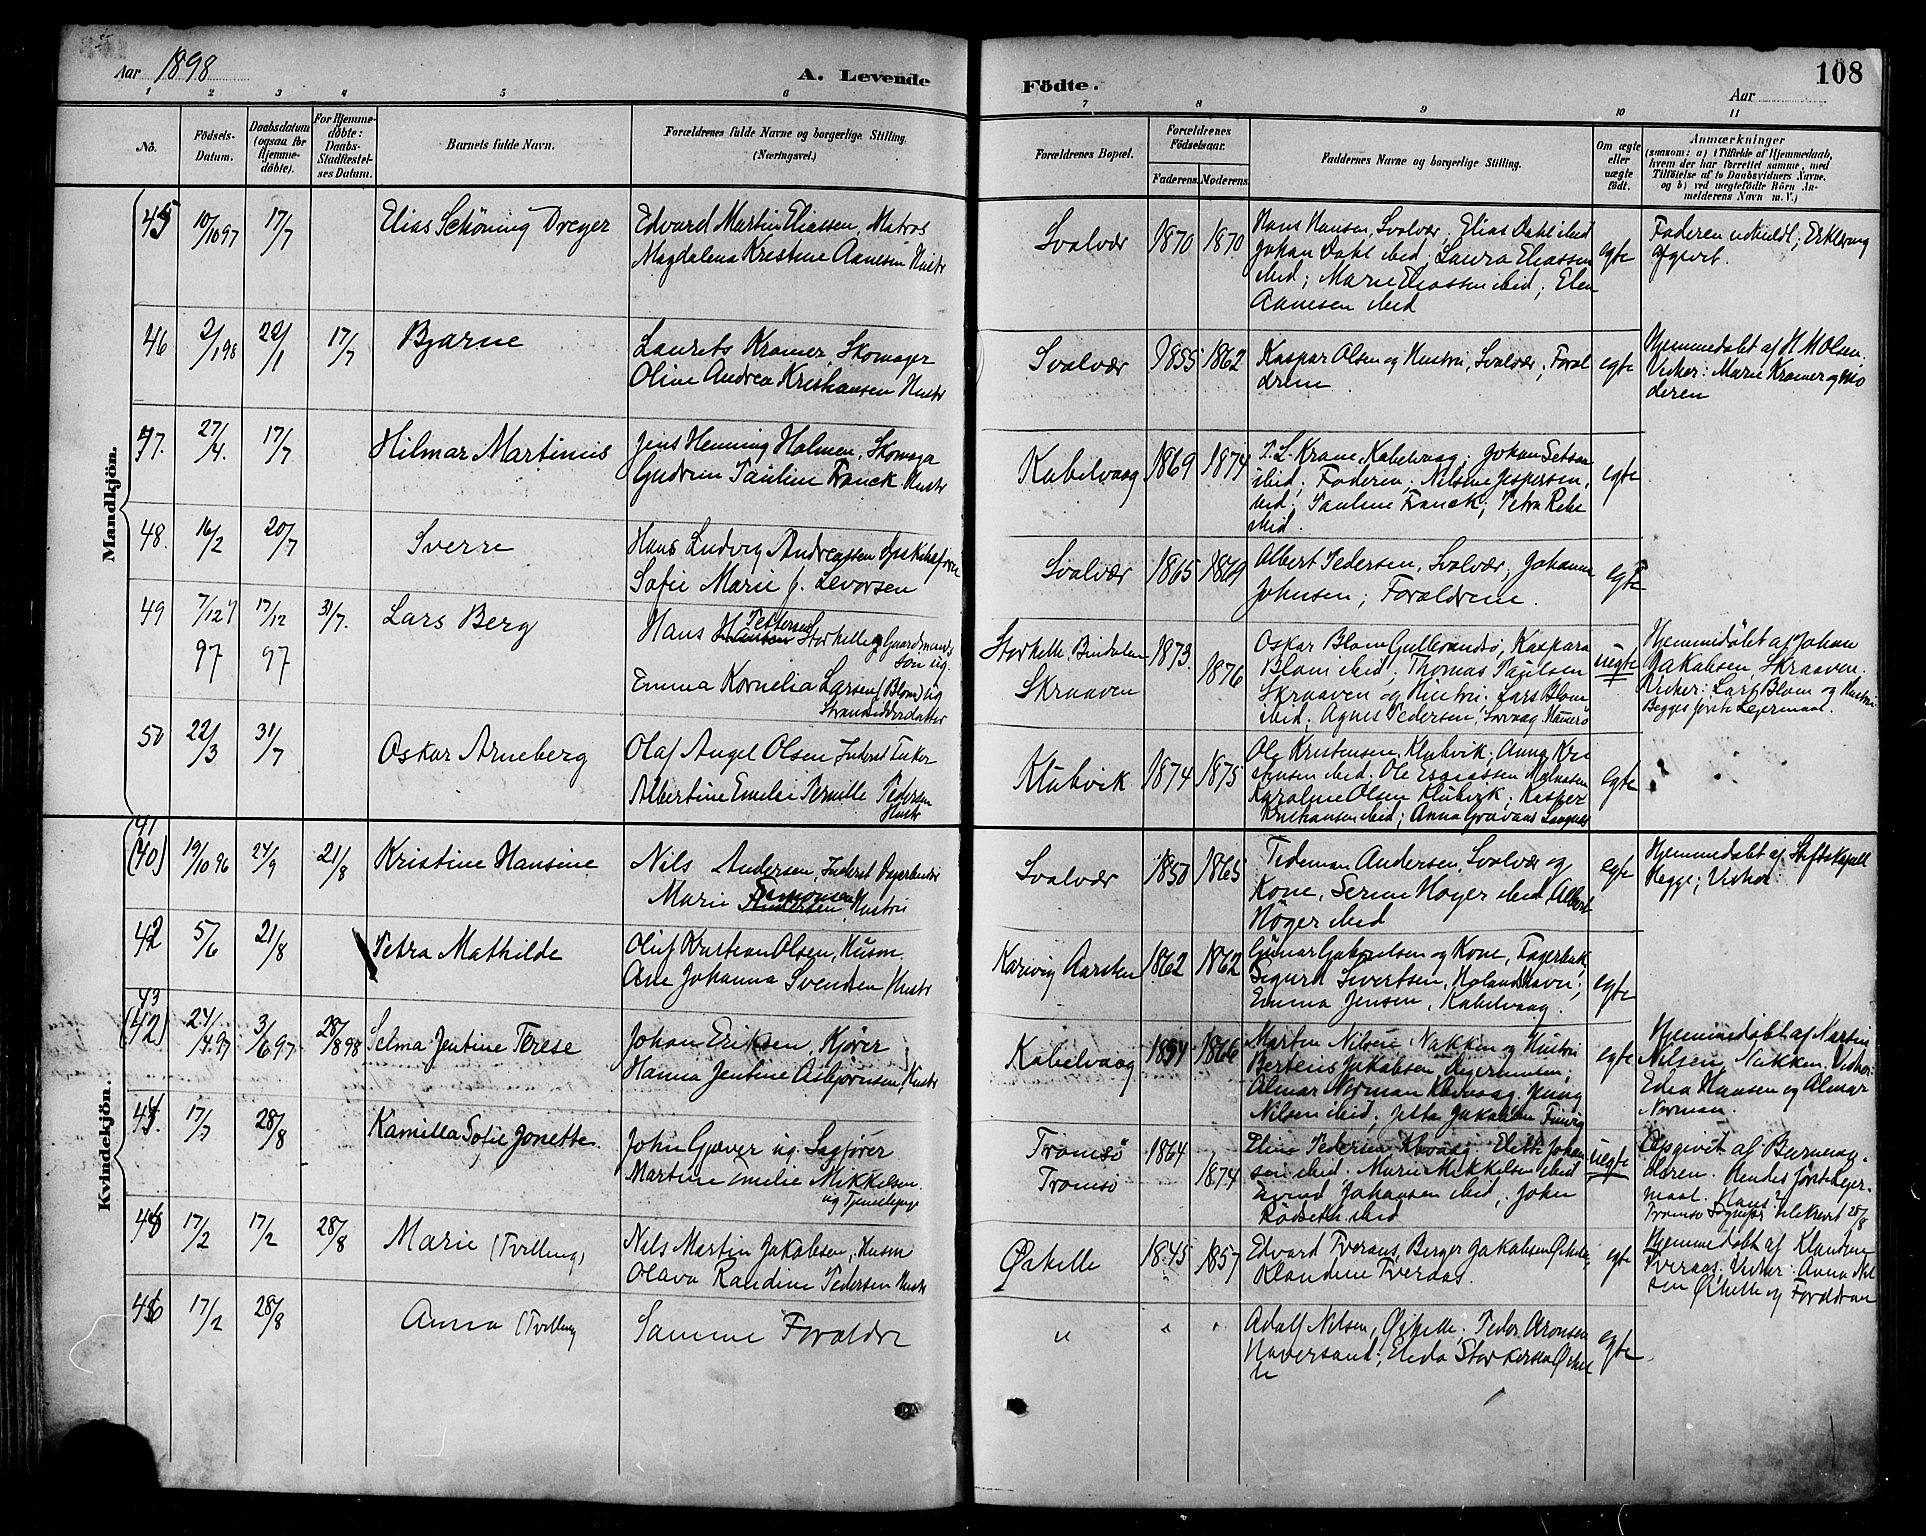 Aar 1898
A. Levende
Födte.
108
Aar
1 2 3 4 5 6 7 8 9 10 11
No.
Födsels-
Datum.
Daabsdatum
(ogsaa for
Hjemme-
döbte).
For Hjemme-
döbte:
Daabs-
Stadfæstel-
ses Datum.
Barnets fulde Navn.
Forældrenes fulde Navne og borgerlige Stilling.
(Næringsvei.)
Forældrenes Bopæl.
Forældrenes
Födselsaar.
Faderens.
Moderens.
Faddernes Navne og borgerlige Stilling.
Om ægte
eller
uægte
födt.
Anmærkninger
(saasom: a) i Tilfælde af Hjemmedaab,
hvem der har forrettet samme, med
Tilföielse af to Daabsvidners Navne,
og b) ved uægtefödte Börn An-
melderens Navn m. V.)
Mandkjön.
45 10/10 97 17/7
Elias Schöning Dreyer
Edvard Martin Eliassen, Matros
Magdalena Kristine Aanesen Hustr
Svolvær 1870 1870
Hans Hansen, Svolvær. Elias Dahl ibid
Johan Dahl ibid; Laura Eliassen
ibid; Marie Eliassen ibid; Elen
Aanesen ibid
egte
Faderen udmeldt; Erklæring
afgivet.
46 2/1 98 22/1 17/7
Bjarne
Laurits Kramer, Skomager
Oline Andrea Kristiansen Hustr
Svolvær 1855 1862
Kaspar Olsen og Hustru, Svolvær, Foræl
drene
egte
Hjemmedøbt af H M Olsen.
Vidner: Marie Kramer og Mo
deren
47. 27/4. 17/7
Hilmar Martinius
Jens Henning Holmen, Skomage
Gudrun Pauline Franck Hustr
Kabelvaag 1869 1874
Krane, Kabelvaag; Johan
ibid; Faderen; Nilsine Jespersen,
ibid; Pauline Franck; Petra
ibid.
egte
48. 16/2 20/7
Sverre
Hans Ludvig Andreassen
Sofie Marie f. Levorsen
Svolvær 1865 1869
Albert Pedersen, Svolvær; Johanna
Johnsen; Forældrene.
egte
49 7/12 97 17/12 97 31/7.
Lars Berg
Hans Pettersen Storhelle, Gaardmands
søn ug.
Emma Kornelia Larsen (Blom) ug
Strandsidderdatter
Storhelle, Bindalen 1873.
Skraaven 1876
Oskar Blom Gullbrandsø, Kaspara
Blom ibid; Thomas Paulsen
Skraaven og Hustru; Lars Blom
ibid; Agnes Pedersen,
uegte
Hjemmedøbt af Johan
Jakobsen, Skraaven.
Vidner: Lars Blom og Hustru
Begges første Lejermaal.
50 22/3 31/7
Oskar Arneberg
Olaf Angel Olsen Inderst Fisker
Albertine Emelie Pernille Pedersen
Hustr
Klubvik 1874 1875
Ole Kristensen, Klubvik; Anna Kri
stensen ibid; Ole
Karoline Olsen Klubvik; Kasper
Kristiansen ibid; Anna
egte
Kvindekjön.
41
(40) 19/10 96 24/9 21/8
Kristine Hansine
Nils Andersen, Inderst
Marie Hustru
Svolvær 1850 1865
Tideman Andersen, Svolvær og
Kone, Serine Höyer ibid, Albert
Höyer ibid
egte
Hjemmedøbt af Stiftskapell
Hegge; Vidner:
42 5/6 21/8
Petra Mathilde
Oluf Kristian Olsen, Husm.
Ane Johanna Svendsen, Hustr
1862 1862
Gunar Gabrielsen og Kone,
Sigurd Sivertsen, Holandshavn;
Emma Jensen, Kabelvaag.
egte
43
(42) 24/4 97 3/6 97 28/8 98
Selma Jentine Terese
Johan Eriksen, Kjører
Hanna Jentine Asbjørnsen, Hustr
Kabelvaag 1854 1866
Martin Nilsen, Nakken og Hustru
Berteus Jakobsen,
Almar Norman
Nilsen ibid; Jette Jakobsen
egte
Hjemmedøbt af Martin
Nilsen, Nakken. Vidner:
Edea Hansen og Almar
Norman.
44. 17/7 28/8
Kamilla Sofie Jonette
John Gjæver ug. Sagfører
Martine Emilie Mikkelsen
ug Tjenestepige
Tromsø 1864
Tromsø 1874
Pedersen Kbvaag. Johan
sen ibid. Marie Mikkelsen ibid
Eivind Johansen ibid; John
ibid
uegte
Opgivet af Barnemo-
deren. Hendes første Lejer-
maal.
45 17/2 17/2 28/8
Marie (Tvilling)
Nils Martin Jakobsen, Husm
Olava Randine Pedersen Hustr
Ørhelle 1845 1857
Edvard Tveraas, Berger Jakobsen Ørhelle,
Klaudine Tveraas.
egte
Hjemmedøbt af Klaudine
Tveraas; Vidner: Anna Nil
sen Ørhelle og Forældrene
46 17/2 28/8
Anna (Tvilling
Samme Forældre
" " "
Adolf Nilsen, Ørhelle; Peder Aronsen
; Elida Storkersen Ørhel
le
egte